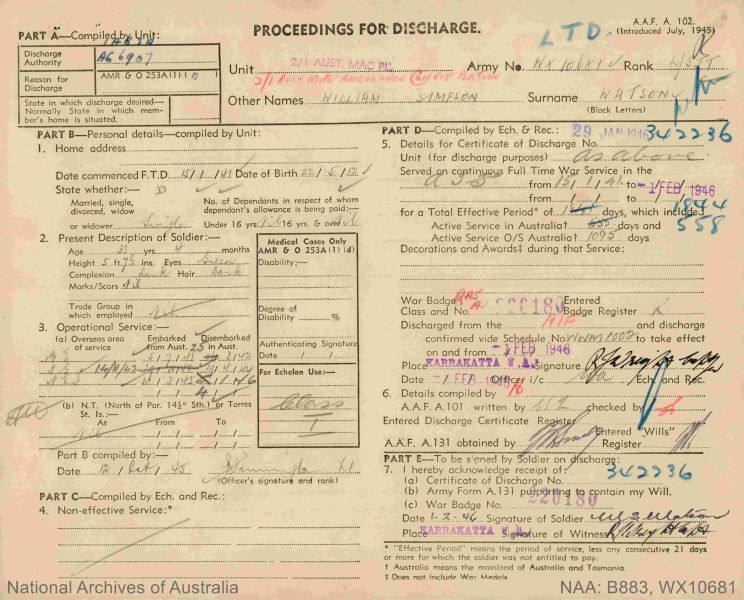 PROCEEDINGS FOR DISCHARGE.
A.A.F. A. 102.
(Introduced July, 1945)
LTD.
PART A—Compiled by Unit:
Discharge Authority
A66907
Reason for Discharge
AMR & O 253A(1)( )
State in which discharge desired—
Normally State in which member's home is situated.
Unit 2/1 AUST. MAC PL.
2/1 Aust Motor Ambulance Convoy Platoon
Army No. WX10681 Rank
Other Names WILLIAM SIMPSON Surname WATSON
(Block Letters)
PART B—Personal details—compiled by Unit:
1. Home address
Date commenced F.T.D. 15/1/41 Date of Birth 22/5/12
State whether:—
Married, single, divorced, widow or widower Single
No. of Dependants in respect of whom dependant's allowance is being paid:—
Under 16 yrs. Nil 16 yrs. & over Nil
2. Present Description of Soldier:—
Age 33 years 4 months
Height 5 ft. 7½ ins. Eyes Green
Complexion Dark Hair Dark
Marks/Scars Nil
Trade Group in which employed Nil
Medical Cases Only
AMR & O 253A1 (d)
Disability:—
Degree of Disability %
Authenticating Signature
Date / /
For Echelon Use:—
Class
I
3. Operational Service:—
(a) Overseas area of service
Embarked from Aust.
Disembarked in Aust.
(b) N.T. (North of Par. 14½° Sth.) or Torres St. Is.:—
At From To
Nil
Part B compiled by
Date 12/Oct/45
(Officer's signature and rank)
PART C—Compiled by Ech. and Rec.:
4. Non-effective Service:*
PART D—Compiled by Ech. & Rec.: 29 JAN 1946
5. Details for Certificate of Discharge No. 342236
Unit (for discharge purposes) as above
Served on continuous Full Time War Service in the
from 15/1/41 to -1 FEB 1946
from to
for a Total Effective Period* of days, which included 1844
Active Service in Australia† days and 558
Active Service O/S Australia† 1095 days
Decorations and Awards‡ during that Service:
War Badge Class and No. RAS A 220180 Entered Badge Register
Discharged from the AIF and discharge
confirmed vide Schedule No. WWM1002 to take effect
on and from -1 FEB 1946
Place KARRAKATTA W.A. Signature
Date -1 FEB 1946 Officer i/c Ech. and Rec.
6. Details compiled by
A.A.F. A.101 written by checked by
Entered Discharge Certificate Register
A.A.F. A.131 obtained by Entered "Wills" Register
PART E—To be signed by Soldier on discharge:
7. I hereby acknowledge receipt of: 342236
(a) Certificate of Discharge No.
(b) Army Form A.131 purporting to contain my Will.
(c) War Badge No. 220180
Date 1-2-46 Signature of Soldier W S Watson
Place KARRAKATTA W.A. Signature of Witness
* "Effective Period" means the period of service, less any consecutive 21 days or more for which the soldier was not entitled to pay.
† Australia means the mainland of Australia and Tasmania.
‡ Does not include War Medals
National Archives of Australia
NAA: B883, WX10681